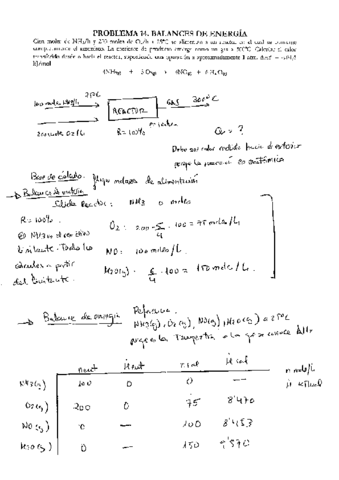 PROBLEMA 14. BALANCES DE ENERGÍA
Cien moles de NH3/h y 200 moles de O2/h a 25ºC se alimentan a un reactor en el cual se consume
completamente el amoníaco. La corriente de productos emerge como un gas a 300ºC. Calcular el calor
transferido desde o hacia el reactor, suponiendo una operación a aproximadamente 1 atm.
kJ/mol
4NH3(g) + 5 O2(g) 4NO(g) + 6 H2O(g)
25ºC
100 moles NH3/h
REACTOR
GAS 300ºC
200 moles O2/h
R=100%
Q = ?
Debe ser calor cedido hacia el exterior
porque la reacción es exotérmica
Base de cálculo: flujo molares de alimentación
Balance de materia
Salida Reactor: NH3 0 moles
R=100%
O2: 200 - 5/4 · 100 = 75 moles/h
El NH3 es el reactivo
limitante. Todos los
NO: 100 moles/h
cálculos a partir
H2O(g) · 6/4 · 100 = 150 moles/h
del limitante.
Balance de energía
Referencia
NH3(g), O2(g), NO(g), H2O(g) a 25ºC
porque es la temperatura a la que se conoce ΔHr
n ent H ent n sal H sal
n moles/h
NH3(g) 100 0 0 —
O2(g) 200 0 75 8'470
NO(g) 0 — 100 8'453
H2O(g) 0 — 150 9'570